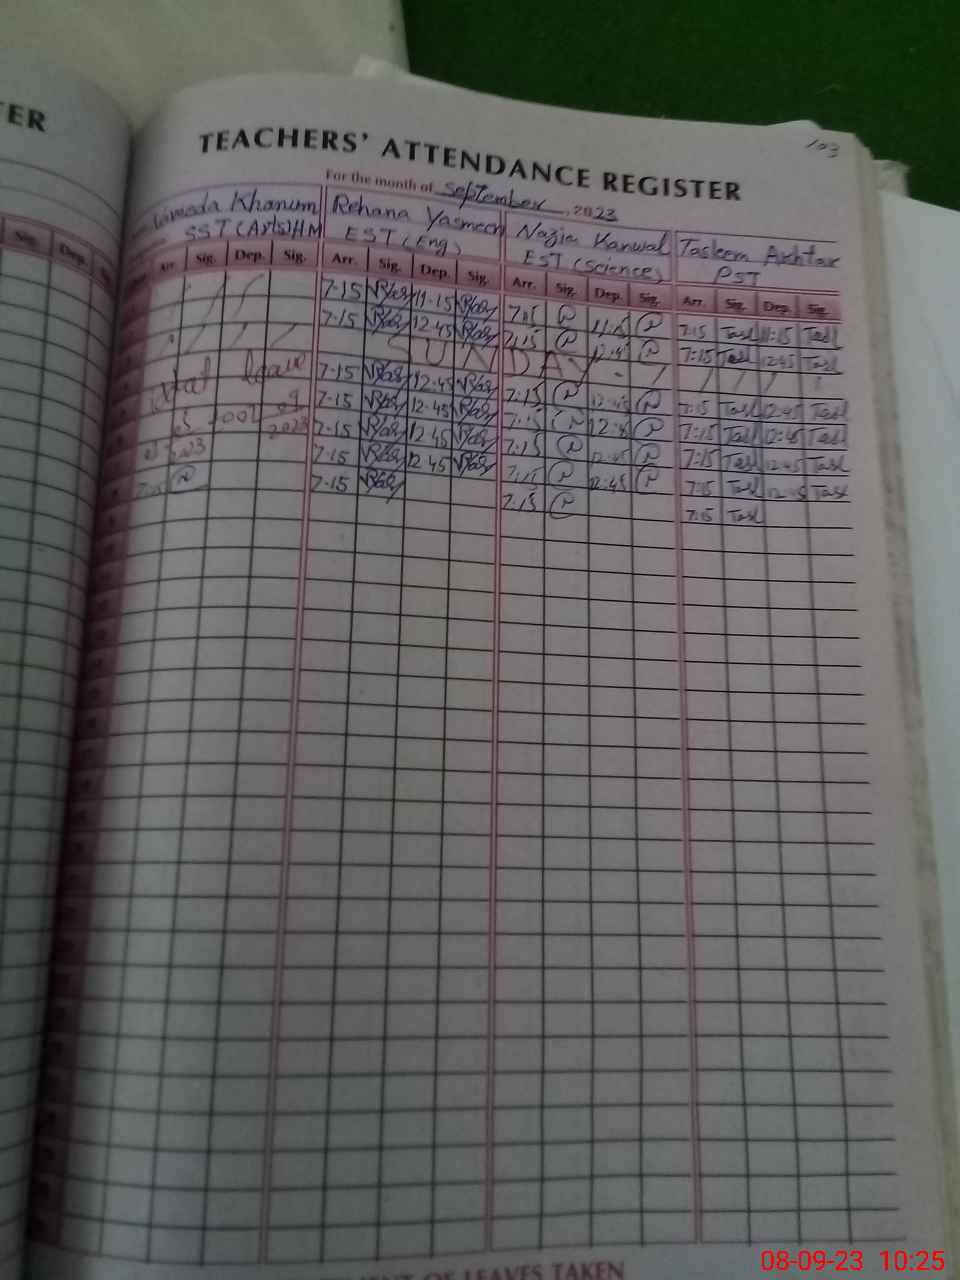 TER
103
TEACHERS' ATTENDANCE REGISTER
For the month of September, 2023
Khanum Rehana Yasmeen Nazia Kanwal Tasleem Akhtar
SST (Arts) HM EST (Eng) EST (Science) PST
Sig. Dep. Arr. Sig. Dep. Sig. Arr. Sig. Dep. Sig. Arr. Sig. Dep. Sig. Arr. Sig. Dep. Sig.
7-15 11-15 7:15 11:15 7:15 Tasl 11:15 Tasl
7-15 12.45 7:15 12:45 7:15 Tasl 12:45 Tasl
SUNDAY
leave 7-15 12.45 7:15 12:45 7:15 Tasl 12:45 Tasl
7-15 12.45 7:15 12:45 7:15 Tasl 12:45 Tasl
2023 7-15 12.45 7:15 12:45 7:15 Tasl 12:45 Tasl
7-15 12.45 7:15 12:45 7:15 Tasl 12:45 Tasl
7-15 7:15 7:15 Tasl
OF LEAVES TAKEN
08-09-23 10:25